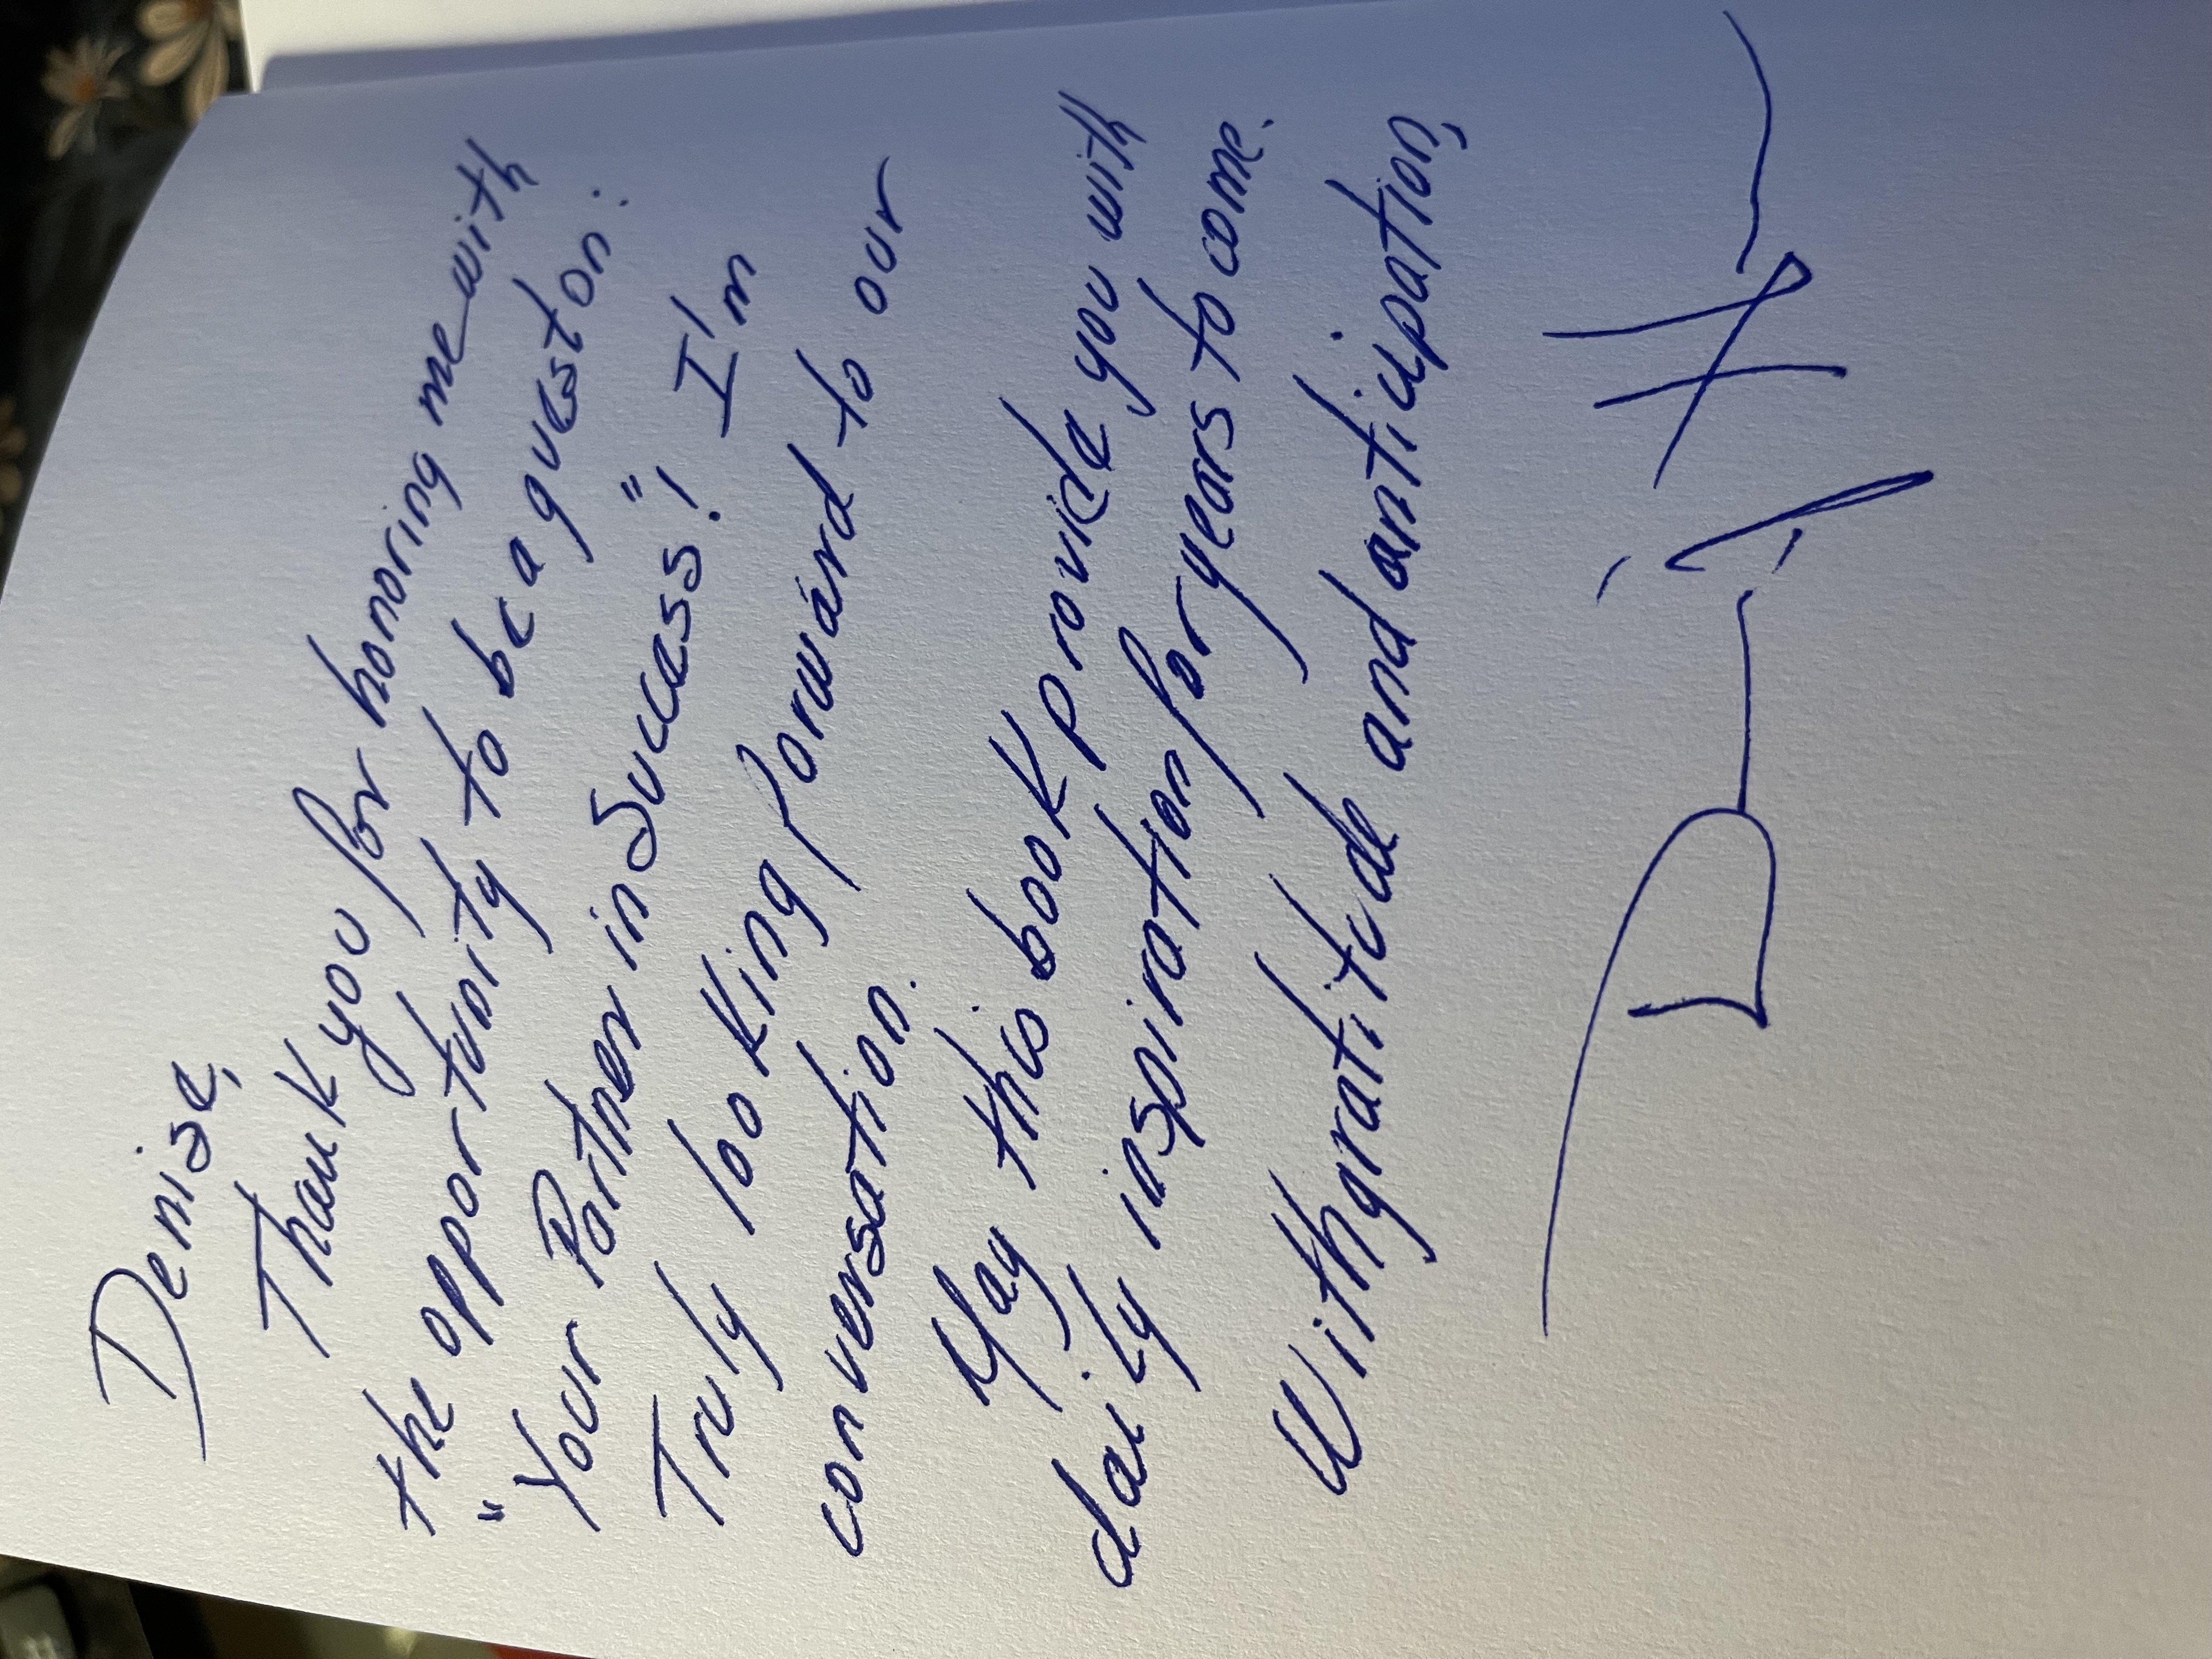 Denise,
Thank you for honoring me with
the opportunity to be a guest on:
"Your Partner in Success"! I'm
Truly looking forward to our
conversation.
May this book provide you with
daily inspiration for years to come.
With gratitude and anticipation,